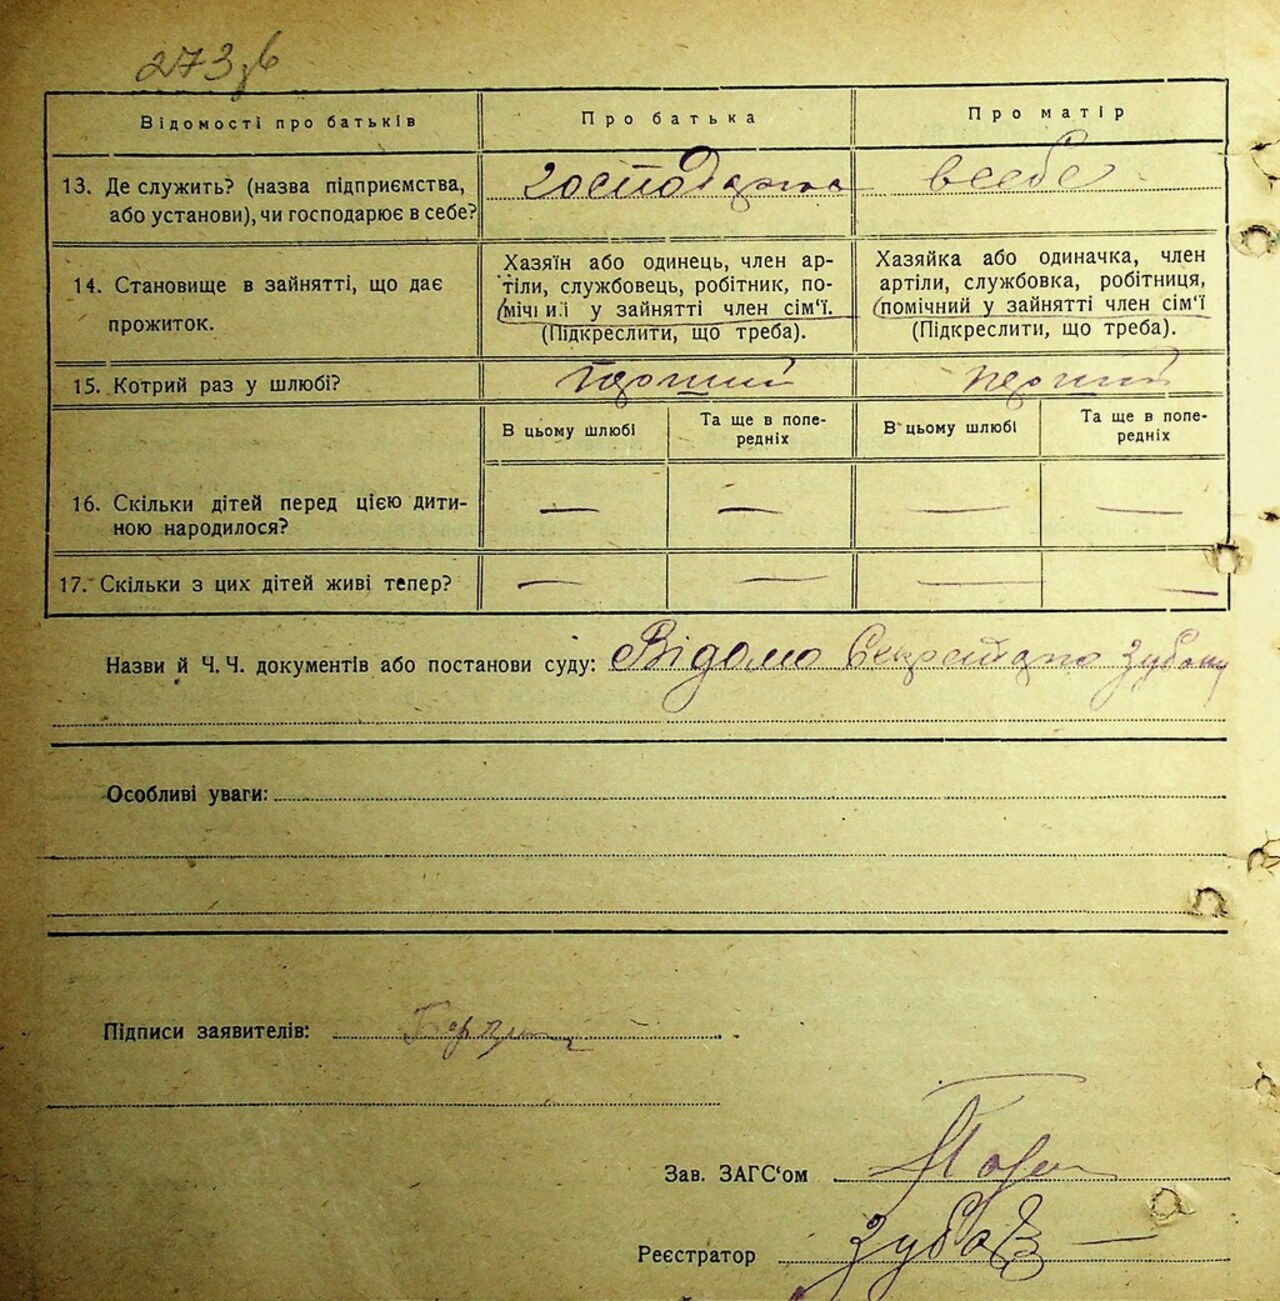 273зв
Відомості про батьків Про батька Про матір
13. Де служить? (назва підприємства, господарює в себе
або установи), чи господарює в себе?
14. Становище в зайнятті, що дає
прожиток.
Хазяїн або одинець, член ар-
тіли, службовець, робітник, по-
мічний у зайнятті член сім‘ї.
(Підкреслити, що треба).
Хазяйка або одиначка, член
артіли, службовка, робітниця,
помічний у зайнятті член сім‘ї
(Підкреслити, що треба).
15. Котрий раз у шлюбі? перший перший
В цьому шлюбі Та ще в попе-
редніх В цьому шлюбі Та ще в попе-
редніх
16. Скільки дітей перед цією дити-
ною народилося? — — — —
17. Скільки з цих дітей живі тепер? — — — —
Назви й Ч. Ч. документів або постанови суду: Відомо Секретарю Зубову
Особливі уваги:
Підписи заявителів:
Зав. ЗАГС‘ом
Реєстратор Зубов